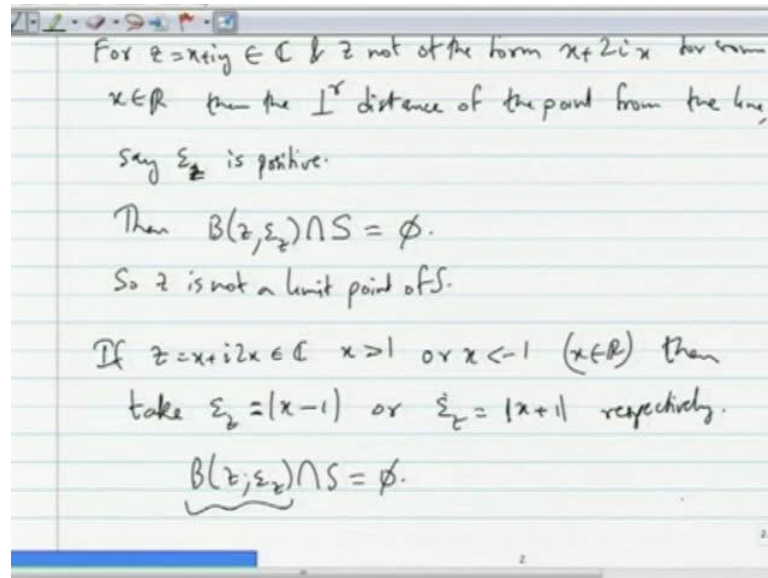 For z = x+iy ∈ ℂ & z not of the form x+2ix for some
x∈ℝ then the ⊥ʳ distance of the point from the line,
say ε_z is positive.
Then B(z,ε_z)∩S = ∅.
So z is not a limit point of S.
If z=x+i2x ∈ ℂ x>1 or x<-1 (x∈ℝ) then
take ε_z = |x-1| or ε_z = |x+1| respectively.
B(z;ε_z)∩S = ∅.
2
2